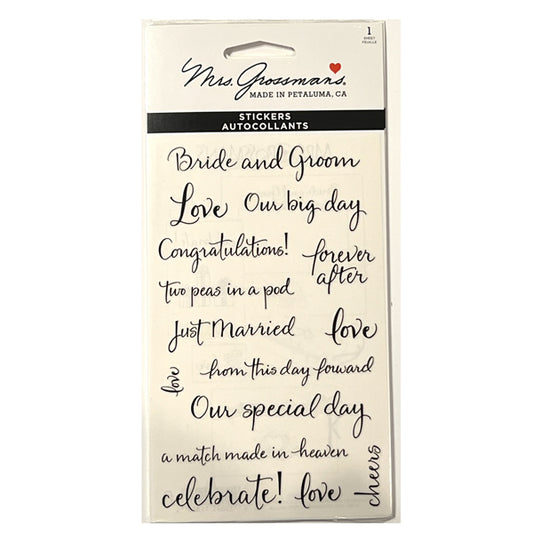 1
SHEET
FEUILLE
Mrs. Grossman's
MADE IN PETALUMA, CA
STICKERS
AUTOCOLLANTS
Bride and Groom
Love Our big day
Congratulations! forever
after
two peas in a pod
Just Married love
love
from this day forward
Our special day
a match made in heaven
celebrate! love
cheers